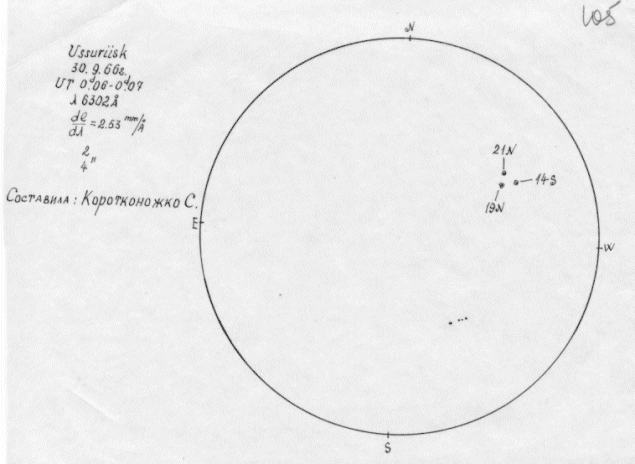 105
N
Ussuriisk
30.9.66г.
UT 0ᵈ.06-0ᵈ.07
λ 6302Å
dl/dλ = 2.53 mm/Å
2
4"
Составила: Коротконожко С.
E
21N
14S
19N
W
S